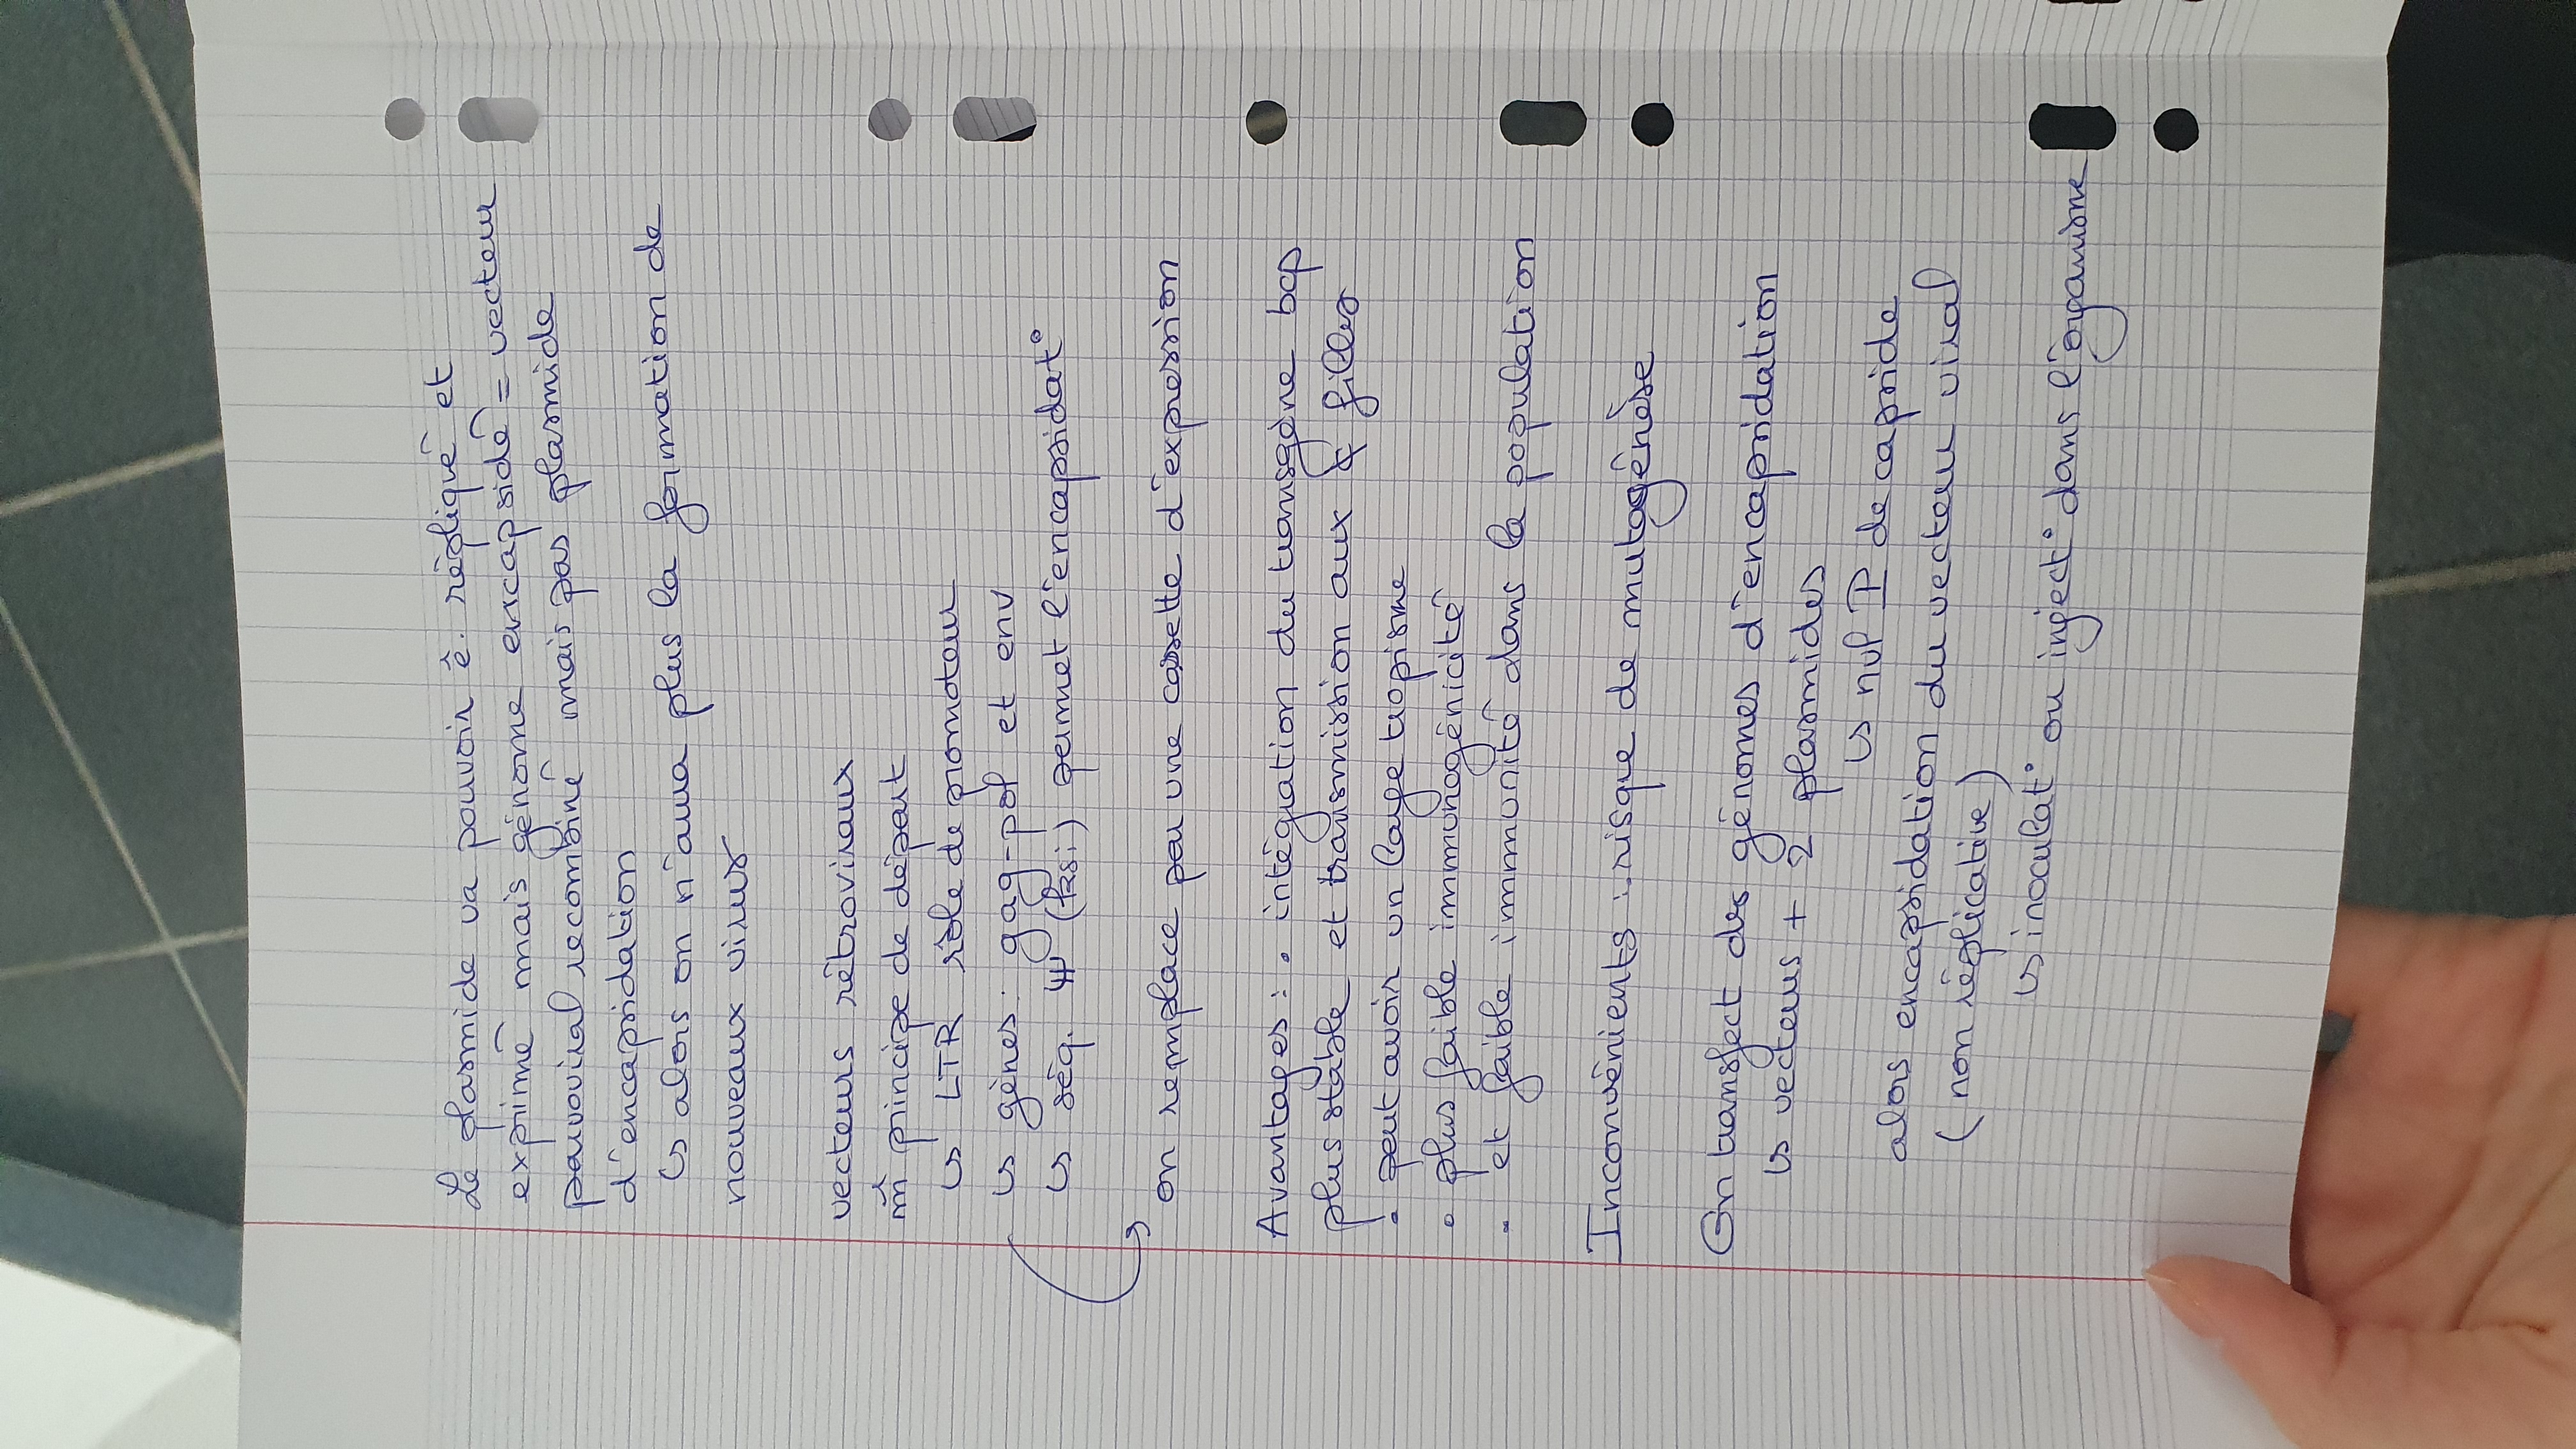 Le plasmide va pouvoir ê. répliqué et
exprimé mais génome encapsidé = vecteur
parvoviral recombiné mais pas plasmide
d'encapsidation
↳ alors on n'aura plus la formation de
nouveaux virus
vecteurs rétroviraux
m̂ principe de départ
↳ LTR rôle de promoteur
↳ gènes gag-pol et env
↳ séq. Ψ (ksi) permet l'encapsidat°
on remplace par une cassette d'expression
Avantages : • intégration du transgène bcp
plus stable et transmission aux ¢ filles
• peut avoir un large tropisme
• plus faible immunogénicité
• et faible immunité dans la population
Inconvénients : risque de mutagénèse
On transfect des génomes d'encapsidation
↳ vecteurs + 2 plasmides
↳ de capside
alors encapsidation du vecteur viral
(non réplicative)
↳ inoculat° ou inject° dans l'organisme